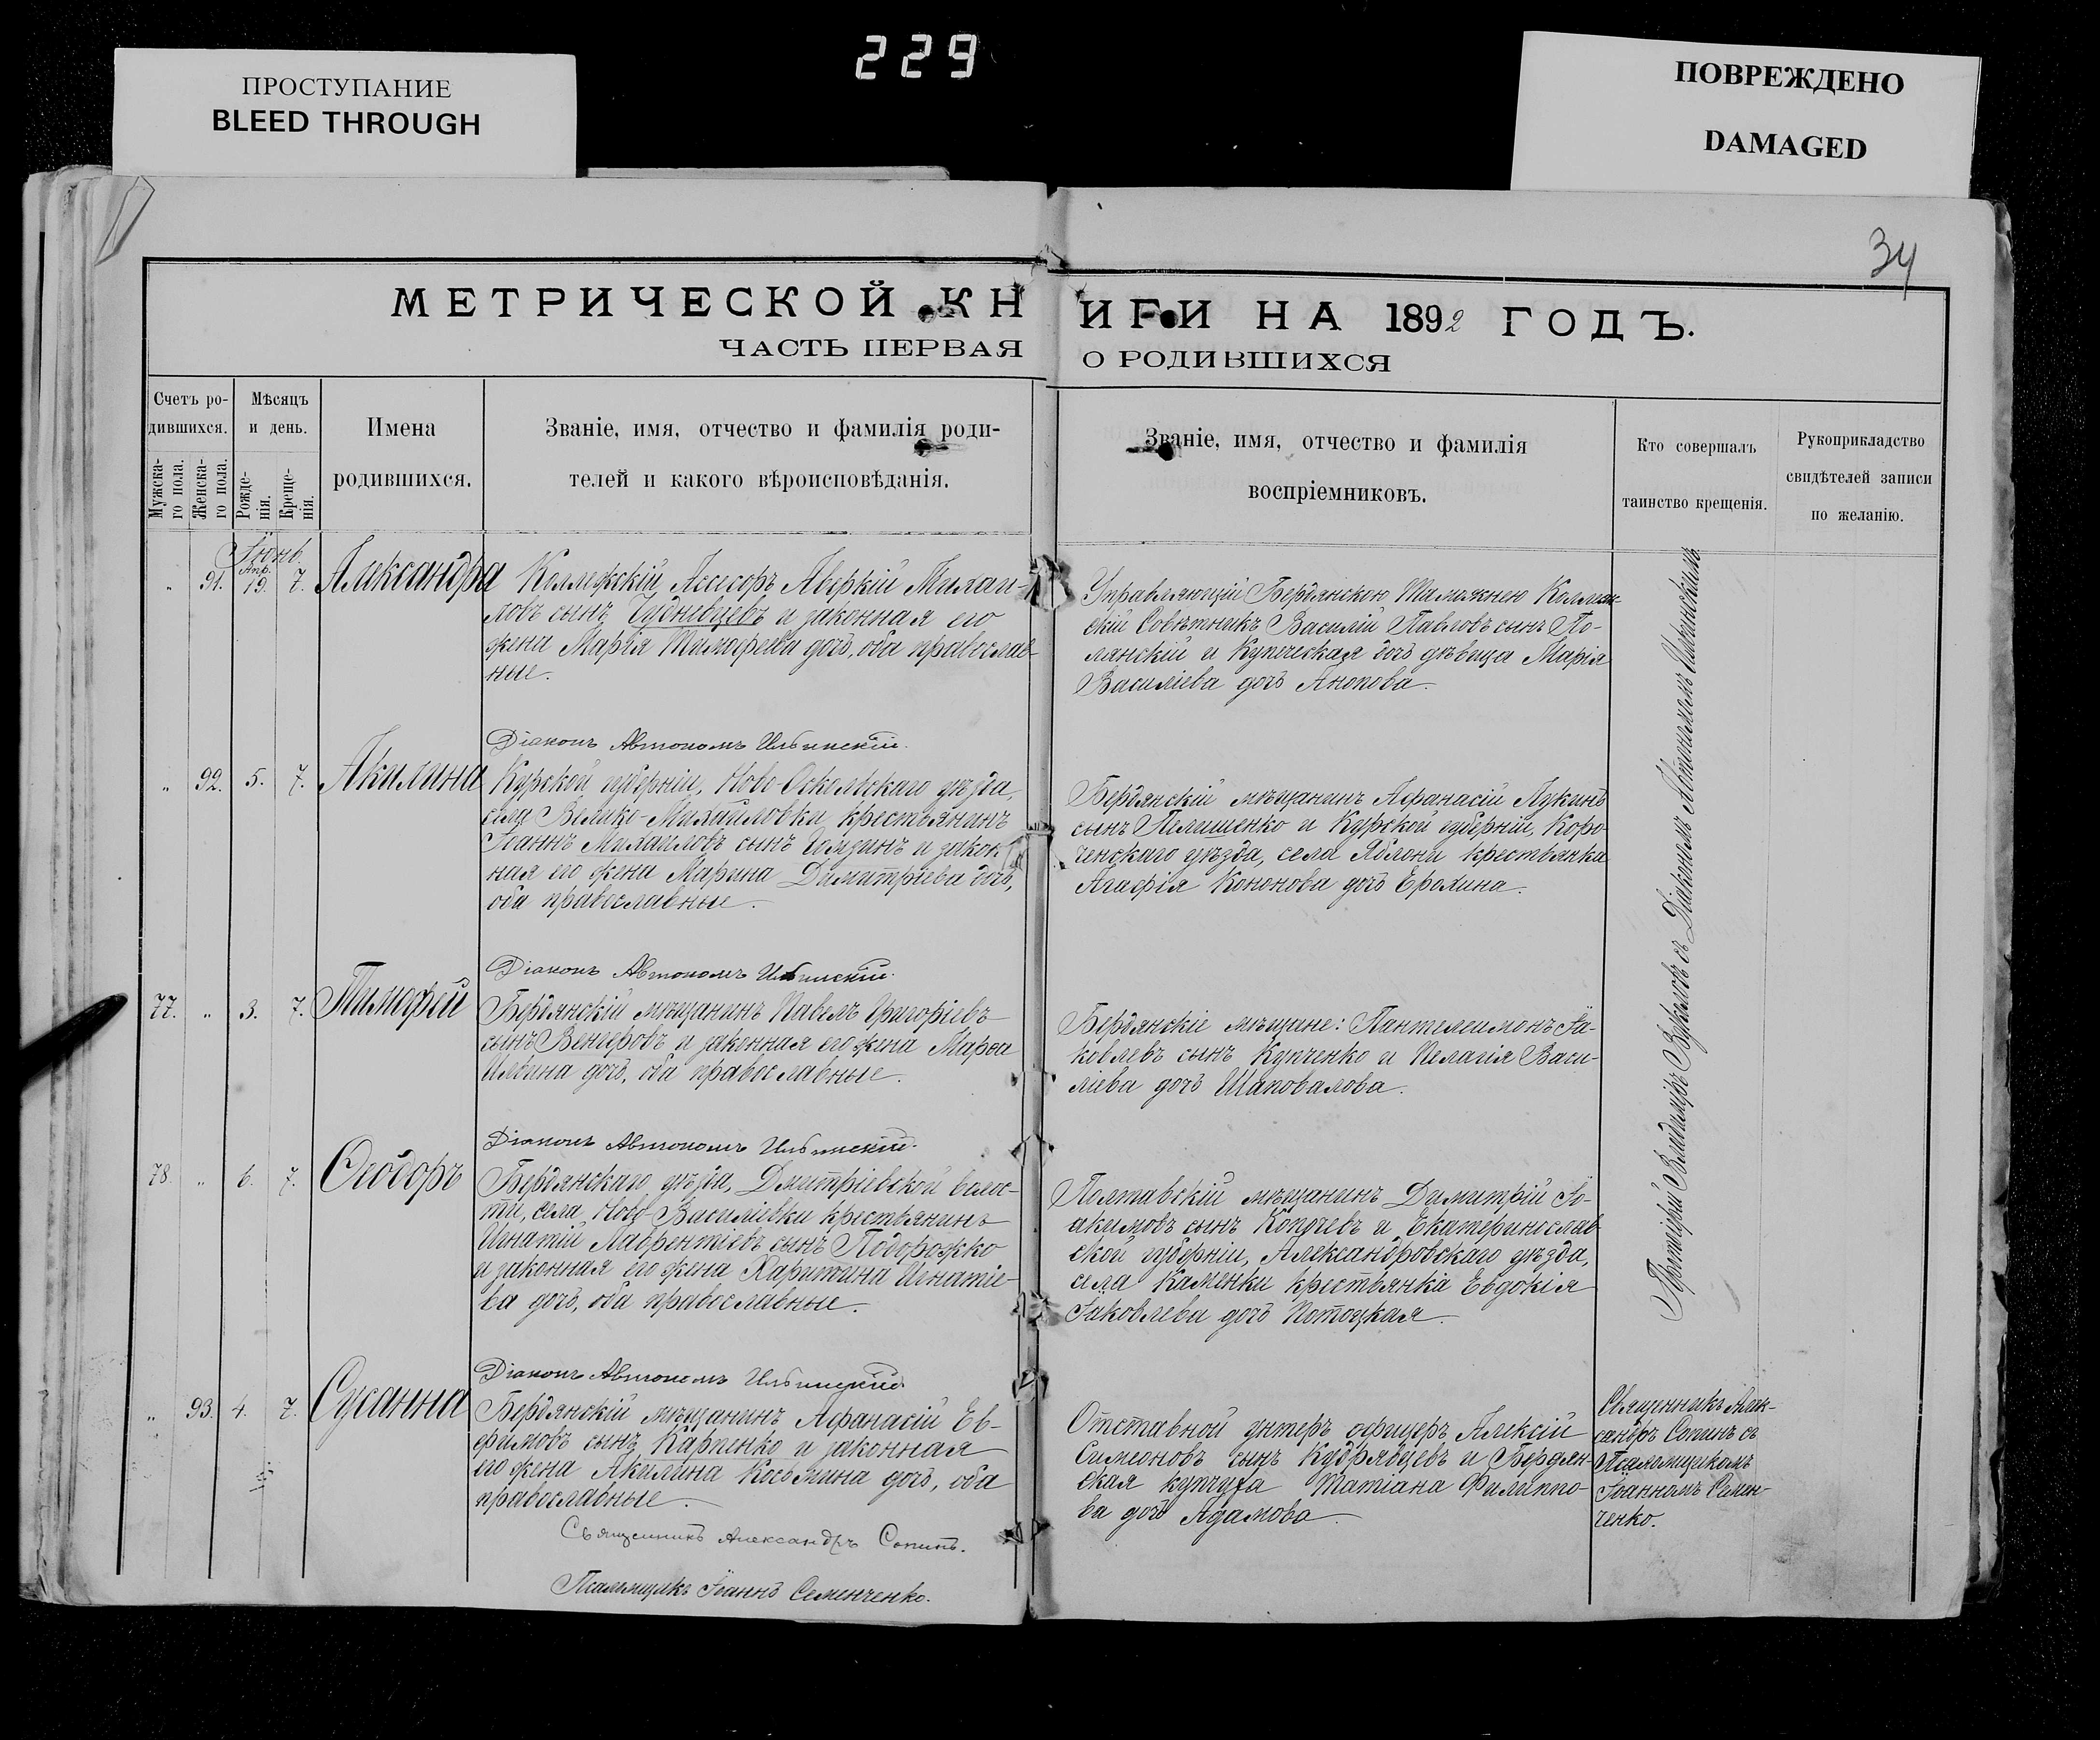 229
ПРОСТУПАНИЕ
BLEED THROUGH
ПОВРЕЖДЕНО
DAMAGED
34
МЕТРИЧЕСКОЙ КНИГИ НА 1892 ГОДЪ.
ЧАСТЬ ПЕРВАЯ О РОДИВШИХСЯ
Счетъ ро-
дившихся.
Мужска-
го пола.
Женска-
го пола.
Мѣсяцъ
и день.
Рожде-
нія.
Креще-
нія.
Имена
родившихся.
Званіе, имя, отчество и фамилія роди-
телей и какого вѣроисповѣданія.
Званіе, имя, отчество и фамилія
воспріемниковъ.
Кто совершалъ
таинство крещенія.
Рукоприкладство
свидѣтелей записи
по желанію.
Іюнь.
" 91. Апр. 19. 7. Александра
Коллежскій Ассесоръ Аверкій Михаи-
ловъ сынъ и законная его
жена Марія Тимофеева дочь, оба православ-
ные.
Управляющій Бердянскою Таможнею Коллеж-
скій Совѣтникъ Василій Павловъ сынъ По-
лянскій и Купеческая дочь дѣвица Марія
Василіева дочь Анопова.
Діаконъ Автономъ Ильинскій.
" 92. 5. 7. Акилина
Курской губерніи, Ново-Оскольскаго уѣзда,
села Велико-Михайловки крестьянинъ
Іоаннъ Михаиловъ сынъ и закон-
ная его жена Марина Димитріева дочь,
оба православные.
Бердянскій мѣщанинъ Афанасій Лукинъ
сынъ Пелишенко и Курской губерніи, Коро-
ченскаго уѣзда, села Яблони крестьянка
Агафія Кононова дочь Ерохина.
Діаконъ Автономъ Ильинскій.
77. " 3. 7. Тимофей
Бердянскій мѣщанинъ Павелъ Григоріевъ
сынъ Венгеровъ и законная его жена Марѳа
Ильина дочь, оба православные.
Бердянскіе мѣщане: Пантелеимонъ Іа-
ковлевъ сынъ Купченко и Пелагія Васи-
ліева дочь Шаповалова.
Діаконъ Автономъ Ильинскій.
78. " 6. 7. Ѳеодоръ
Бердянскаго уѣзда, Дмитріевской волос-
ти, села Ново-Василіевки крестьянинъ
Игнатій Лаврентіевъ сынъ Подорожко
и законная его жена Харитина Игнатіе-
ва дочь, оба православные.
Полтавскій мѣщанинъ Димитрій Іо-
акимовъ сынъ и Екатеринослав-
ской губерніи, Александровскаго уѣзда,
села Каменки крестьянка Евдокія
Іаковлева дочь Потоцкая.
Протоіерей Владиміръ съ Діакономъ Автономомъ Ильинскимъ.
Діаконъ Автономъ Ильинскій.
" 93. 4. 7. Сусанна
Бердянскій мѣщанинъ Афанасій Ев-
фимовъ сынъ Карпенко и законная
его жена Акилина Косьмина дочь, оба
православные.
Отставной унтеръ офицеръ Алексій
Симеоновъ сынъ Кудрявцевъ и Бердян-
ская купчиха Татіана Филиппо-
ва дочь Адамова.
Священникъ Алек-
сандръ Сопинъ съ
Псаломщикомъ
Іоанномъ Семен-
ченко.
Священникъ Александръ Сопинъ.
Псаломщикъ Іоаннъ Семенченко.